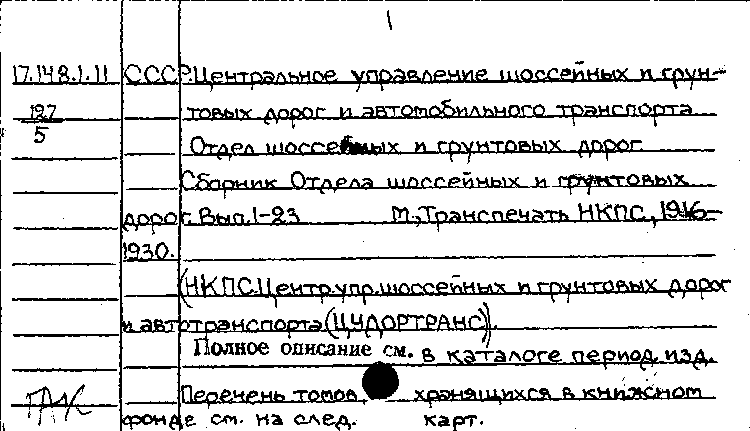 1
17.148.1.11 СССР. Центральное управление шоссейных и грун-
127 товых дорог и автомобильного транспорта
5 Отдел шоссейных и грунтовых дорог
Сборник Отдела шоссейных и грунтовых
дорог. Вып. 1-23 М., Транспечать НКПС,
1930.
(НКПС. Центр. упр. шоссейных и грунтовых дорог
и автотранспорта (ЦУДОРТРАНС)).
Полное описание см. в каталоге период. изд.
Перечень томов, хранящихся в книжном
фонде см. на след. карт.